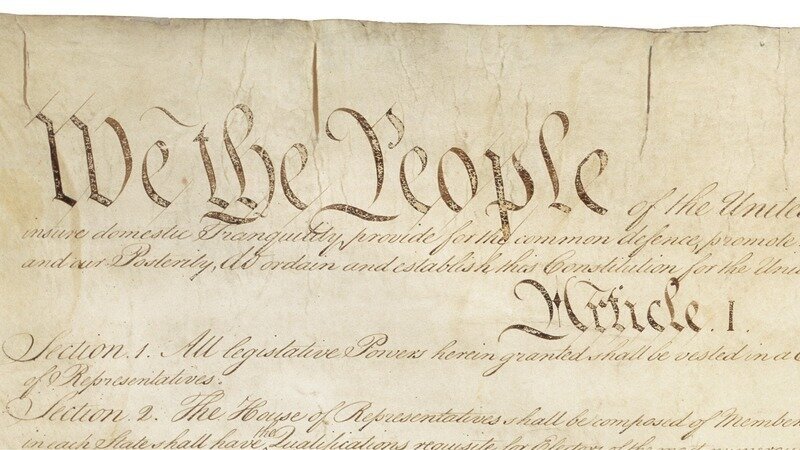 We the People of the Unite
insure domestic Tranquility, provide for the common defence, promote
and our Posterity, do ordain and establish this Constitution for the Uni
Article. I.
Section. 1. All legislative Powers herein granted shall be vested in a
of Representatives.
Section. 2. The House of Representatives shall be composed of Member
in each State shall have the Qualifications requisite for Electors of the most numerous